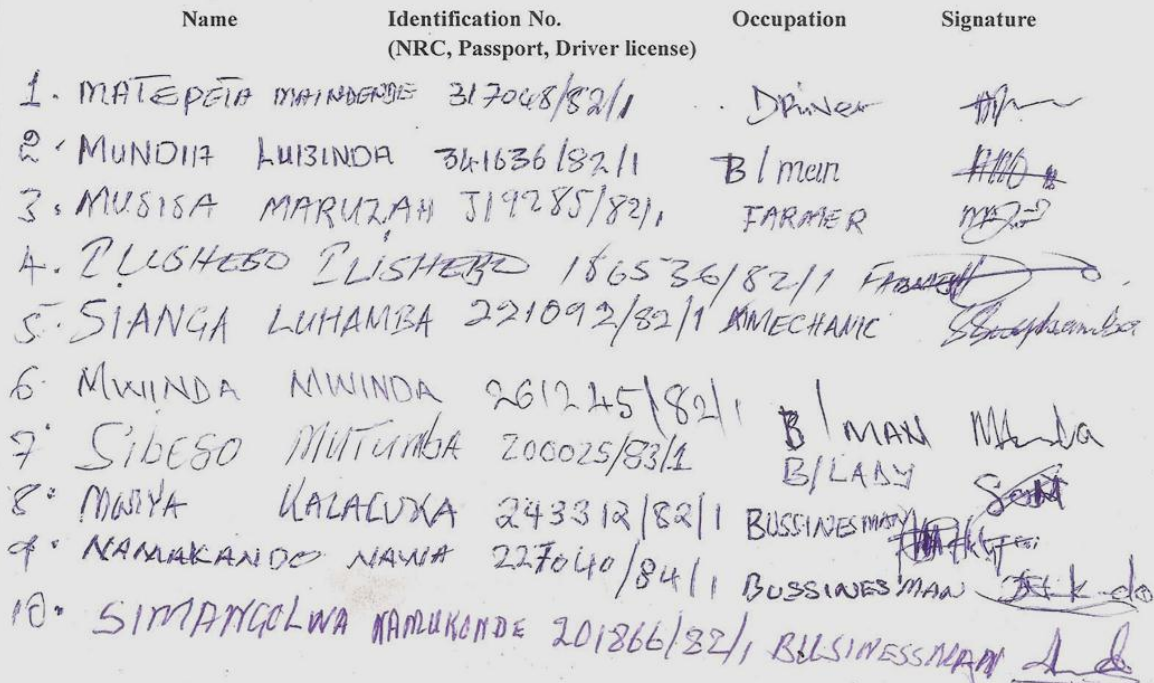 Name Identification No. Occupation Signature
(NRC, Passport, Driver license)
1. MATEPETA MAINDENDE 317048/82/1 Driver
2. MUNDIA LUBINDA 341636/82/1 B/man
3. MUSISA MARUZAH 319285/82/1 FARMER
4. ILUSHEBO ILISHEBO 186536/82/1
5. SIANGA LUHAMBA 221092/82/1 MECHANIC
6. MWIINDA MWINDA 261245/82/1 B/MAN
7. SibESO MUTUMBA 200025/83/1 B/LADY
8. KALALUKA 243312/82/1 BUSSINESMAN
9. NAMAKANDO NAWA 227040/84/1 BUSSINESMAN
10. SIMANGOLWA NAMUKONDE 201866/82/1 BUSINESSMAN